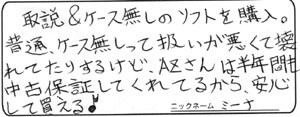 取説&ケース無しのソフトを購入。
普通、ケース無しって扱いが悪くて壊
れてたりするけど、AZさんは半年間も
中古保証してくれてるから、安心
して買える♪
ニックネーム ミーナ